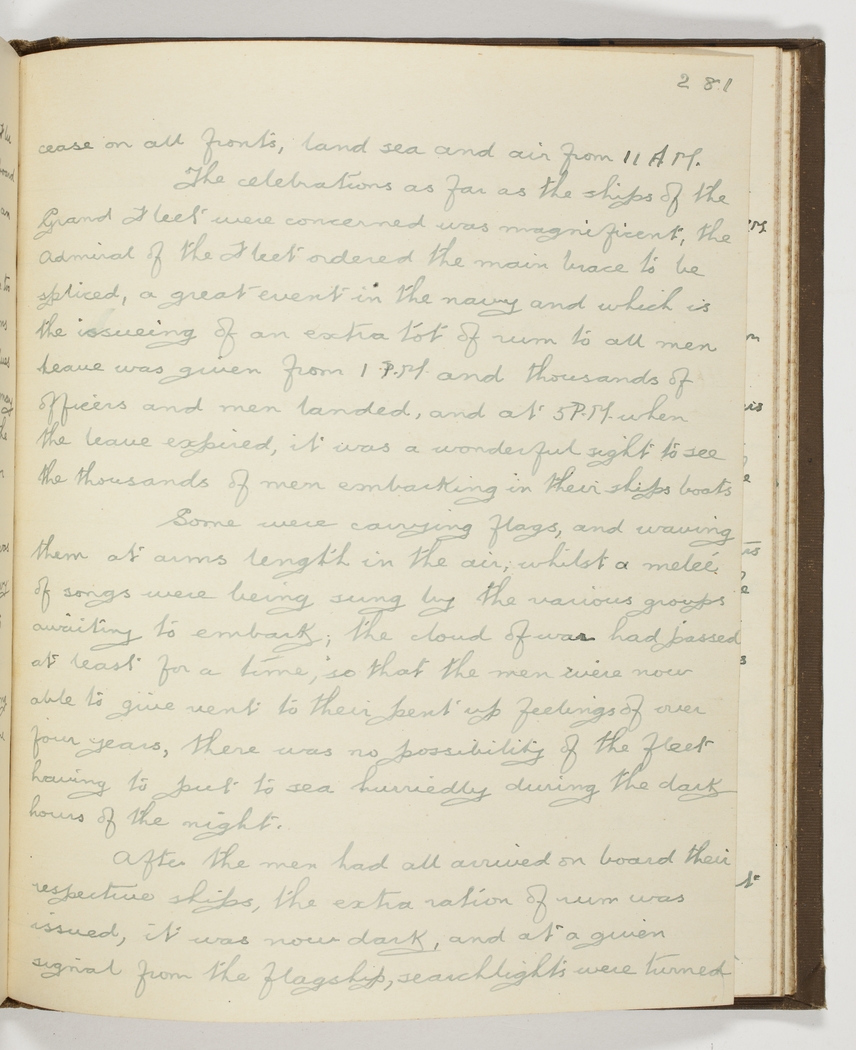 281
cease on all fronts, land sea and air from 11 A.M.
The celebrations as far as the ships of the
Grand Fleet were concerned was magnificent, the
Admiral of the Fleet ordered the main brace to be
spliced, a great event in the navy and which is
the issueing of an extra tot of rum to all men
Leave was given from 1 P.M. and thousands of
officers and men landed, and at 5 P.M. when
the leave expired, it was a wonderful sight to see
the thousands of men embarking in their ships boats
Some were carrying flags, and waving
them at arms length in the air, whilst a meleé
of songs were being sung by the various groups
awaiting to embark; the cloud of war had passed
at least for a time, so that the men were now
able to give vent to their pent up feelings of over
four years, there was no possibility of the fleet
having to put to sea hurriedly during the dark
hours of the night.
After the men had all arrived on board their
respective ships, the extra ration of rum was
issued, it was now dark, and at a given
signal from the flagship, searchlights were turned